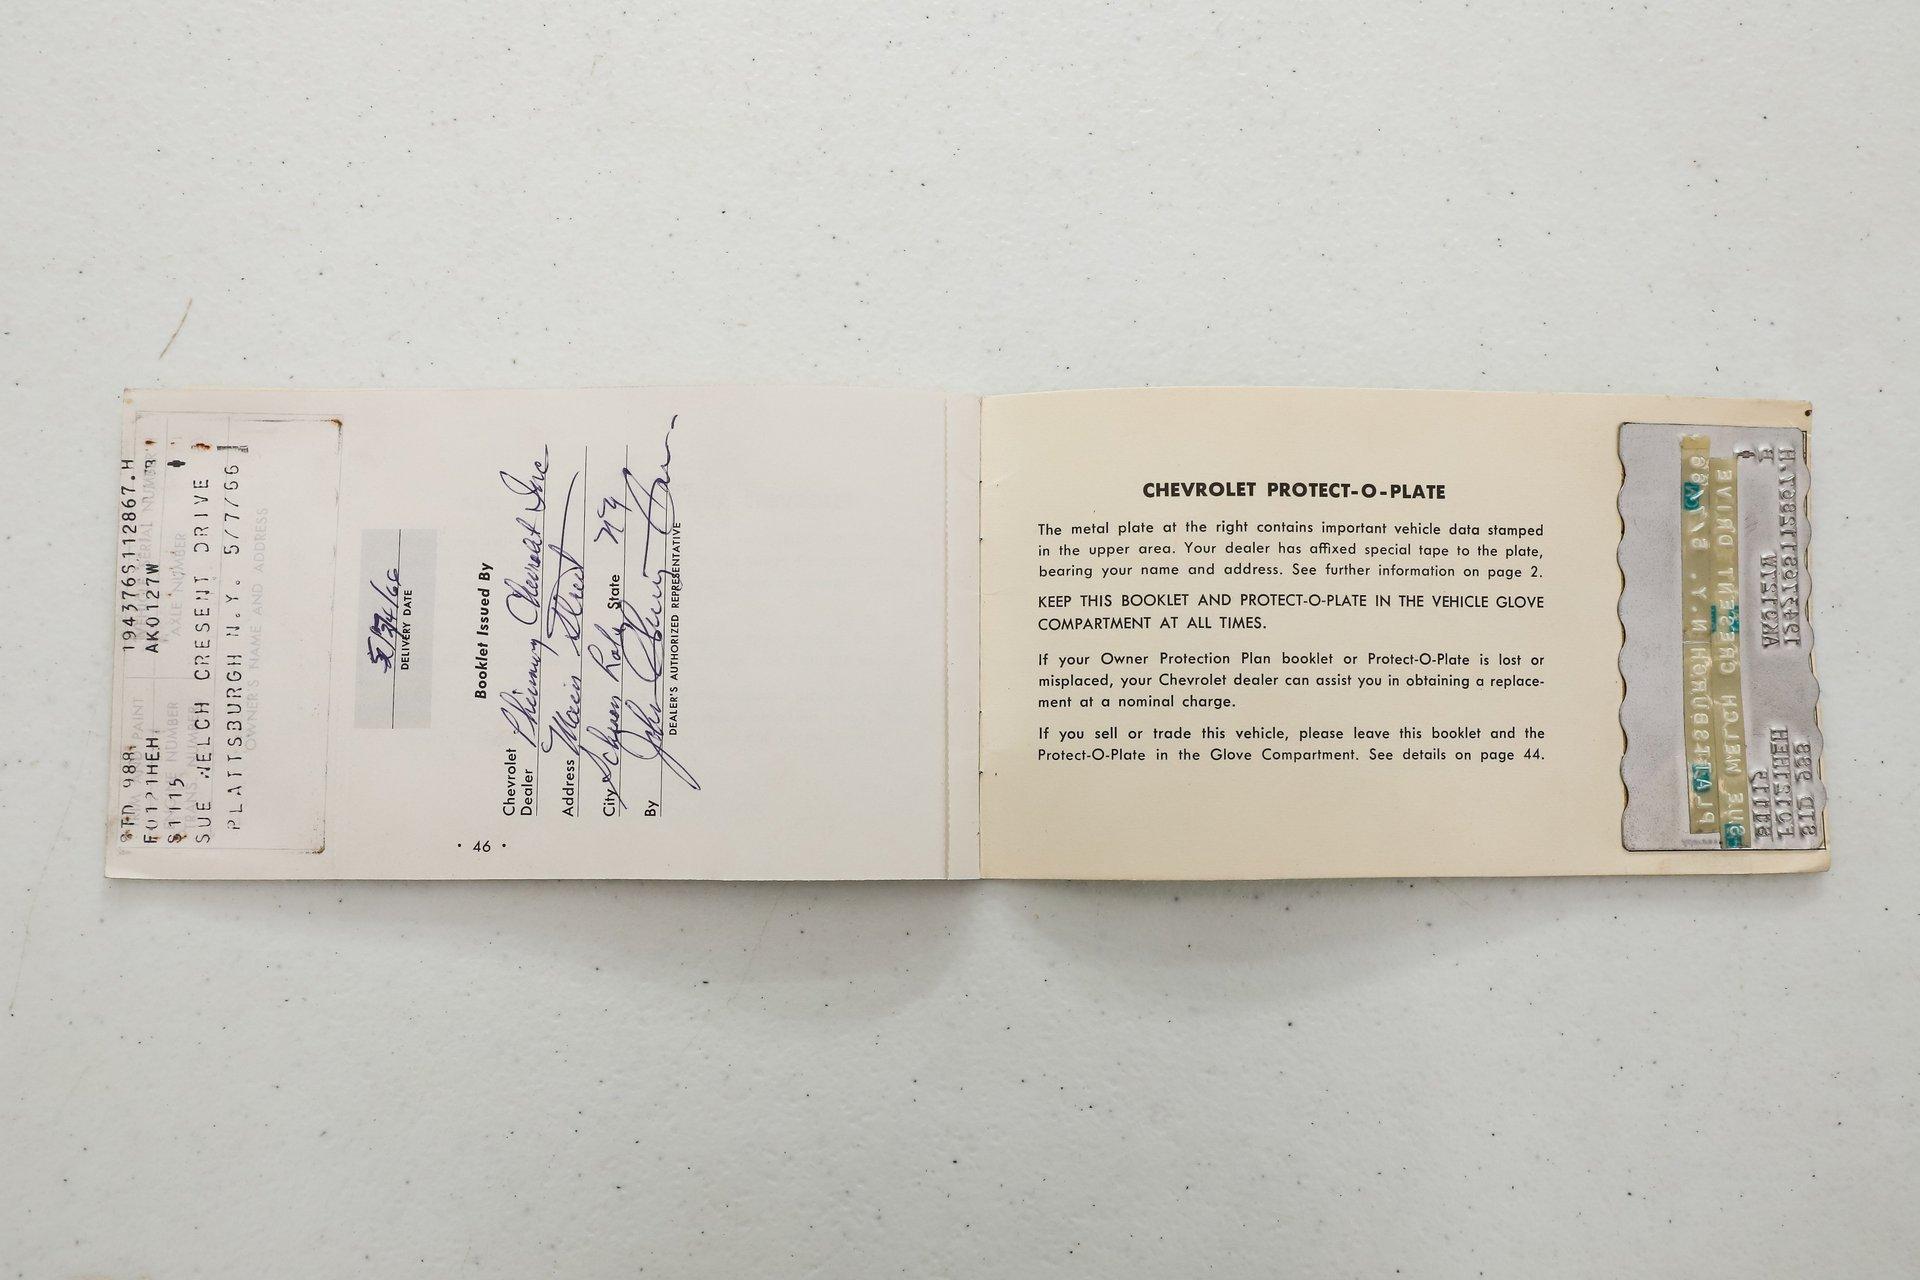 194376S112867.H
STD 988.
AK0127W
F0121HEH
S1115
SUE WELCH CRESENT DRIVE
PLATTSBURGH N.Y. 5/7/66
PAINT
AXLE NUMBER
OWNER'S NAME AND ADDRESS
DELIVERY DATE
Booklet Issued By
Chevrolet
Dealer Chevrolet Inc
Address Main Street
City State NY
By John
DEALER'S AUTHORIZED REPRESENTATIVE
· 46 ·
CHEVROLET PROTECT-O-PLATE
The metal plate at the right contains important vehicle data stamped
in the upper area. Your dealer has affixed special tape to the plate,
bearing your name and address. See further information on page 2.
KEEP THIS BOOKLET AND PROTECT-O-PLATE IN THE VEHICLE GLOVE
COMPARTMENT AT ALL TIMES.
If your Owner Protection Plan booklet or Protect-O-Plate is lost or
misplaced, your Chevrolet dealer can assist you in obtaining a replace-
ment at a nominal charge.
If you sell or trade this vehicle, please leave this booklet and the
Protect-O-Plate in the Glove Compartment. See details on page 44.
194376S112867.H
STD 988
AK0127W
F0121HEH
S1115
SUE WELCH CRESENT DRIVE
PLATTSBURGH N.Y. 5/7/66